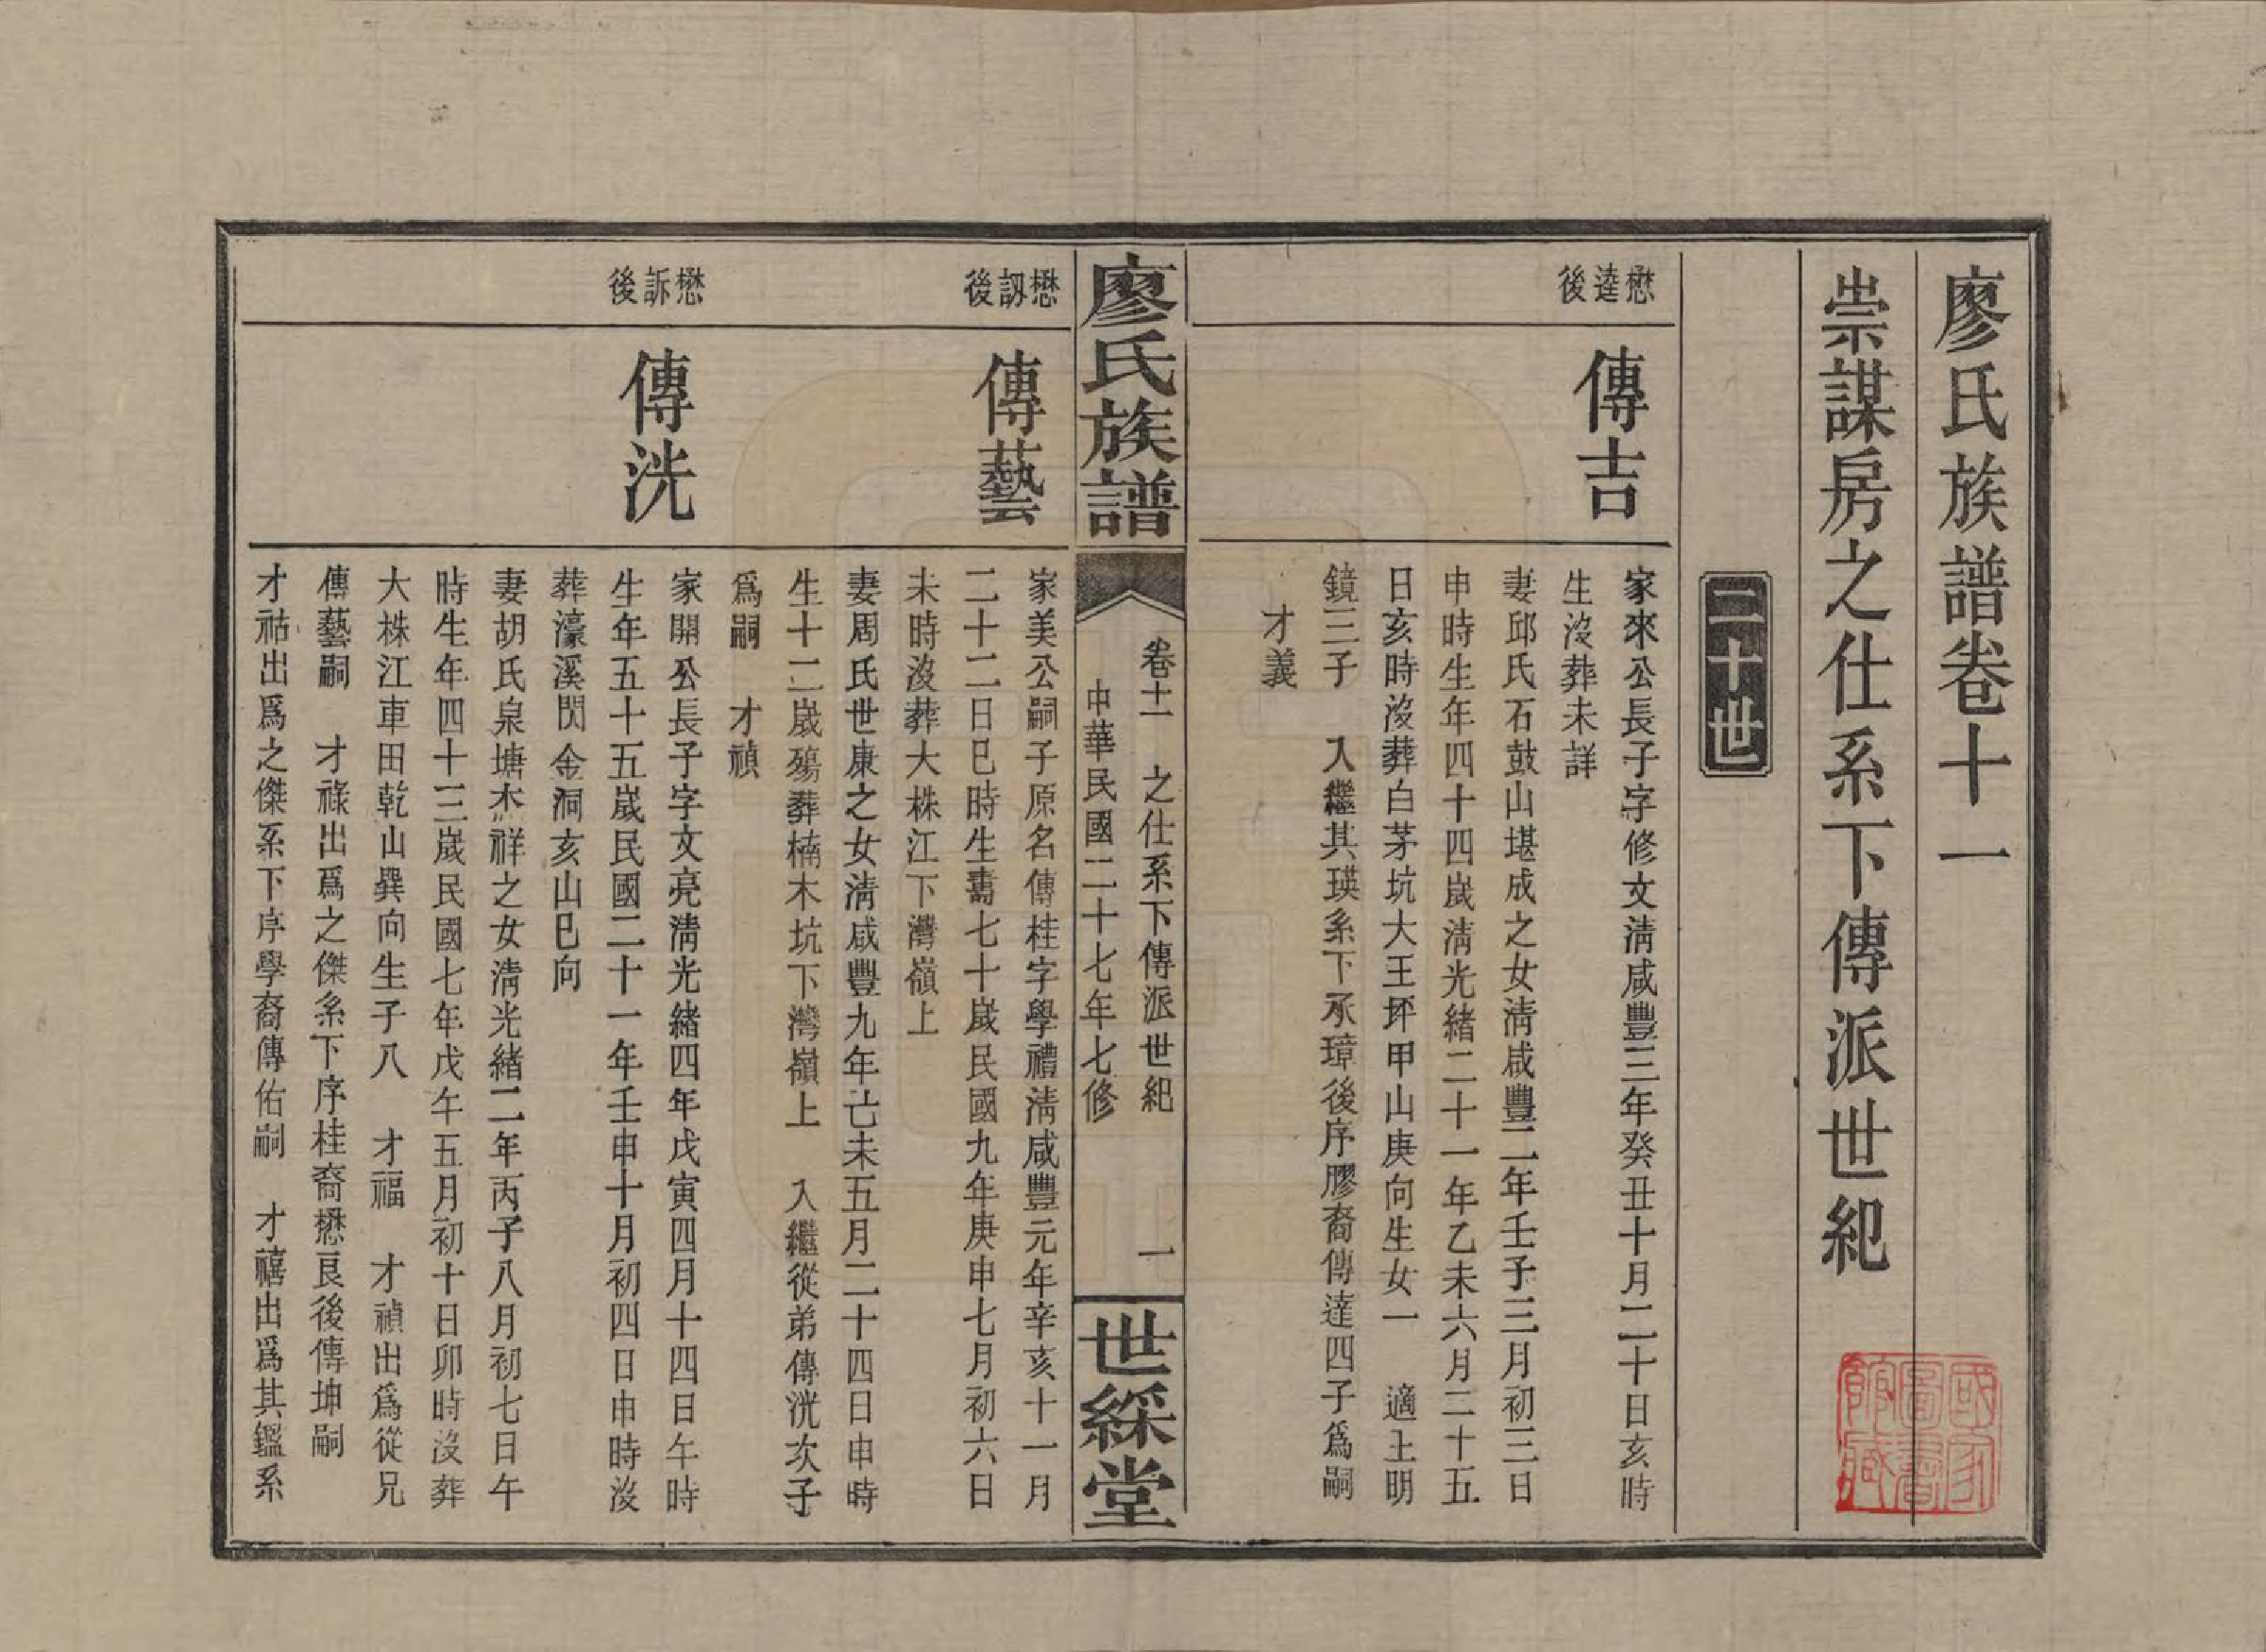 廖氏族譜卷十一
崇謀房之仕系下傳派世紀
二十世
懋逵後
傳吉
家來公長子字修文淸咸豐三年癸丑十月二十日亥時
生沒葬未詳
妻邱氏石鼓山堪成之女淸咸豐二年壬子三月初三日
申時生年四十四歲淸光緒二十一年乙未六月二十五
日亥時沒葬白茅坑大王坪甲山庚向生女一 適土明
鏡三子 入繼其瑛系下承璋後序膠裔傳達四子爲嗣
才義
廖氏族譜
卷十一 之仕系下傳派世紀 一
中華民國二十七年七修
世綵堂
懋訒後
傳藝
家美公嗣子原名傳桂字學禮淸咸豐元年辛亥十一月
二十二日巳時生壽七十歲民國九年庚申七月初六日
未時沒葬大株江下灣嶺上
妻周氏世康之女淸咸豐九年己未五月二十四日申時
生十二歲殤葬楠木坑下灣嶺上 入繼從弟傳洸次子
爲嗣 才禎
懋訴後
傳洸
家開公長子字文亮淸光緒四年戊寅四月十四日午時
生年五十五歲民國二十一年壬申十月初四日申時沒
葬濠溪閃金洞亥山巳向
妻胡氏泉塘木祥之女淸光緒二年丙子八月初七日午
時生年四十三歲民國七年戊午五月初十日卯時沒葬
大株江車田乾山巽向生子八 才福 才禎出爲從兄
傳藝嗣 才祿出爲之傑系下序桂裔懋良後傳坤嗣
才祜出爲之傑系下序學裔傳佑嗣 才禧出爲其鑑系
國家圖書館藏